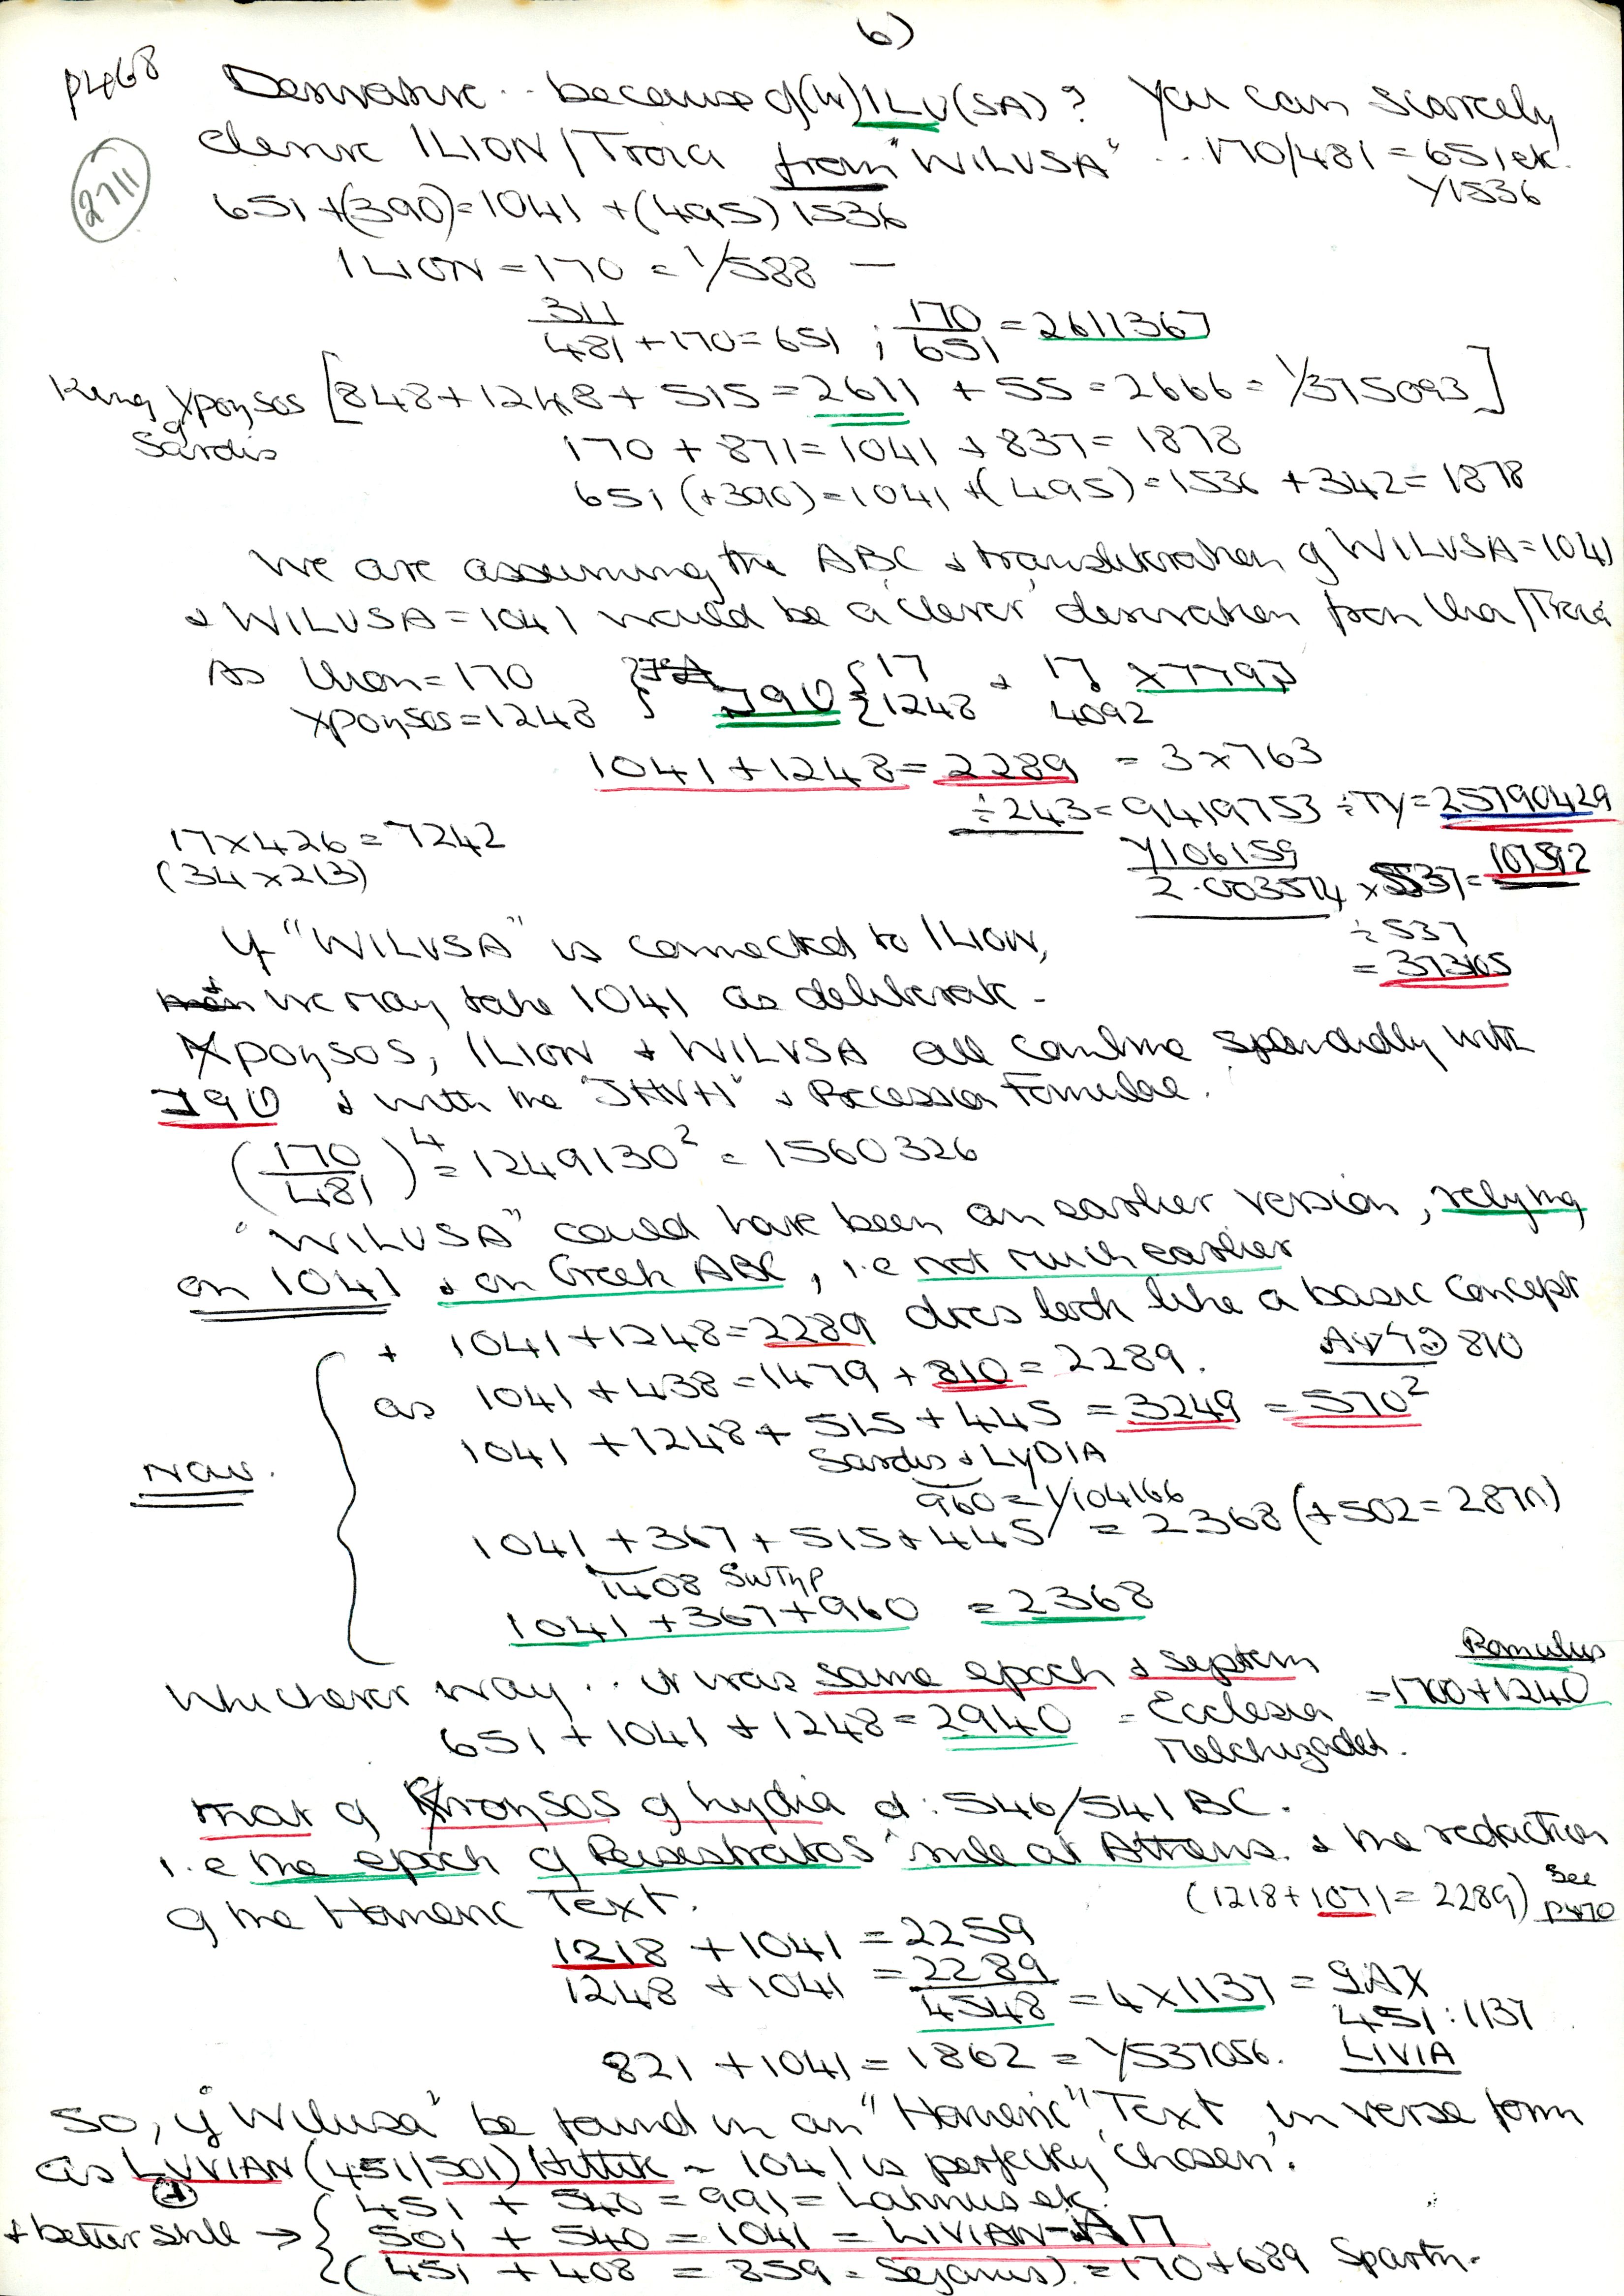 6)
p468
2711
Derivative .. because of (W)ILU(SA)? You can scarcely
derive ILION/Troia from "WILUSA" .. 170/481 = 651 etc.
651 + (390) = 1041 + (495) 1536
Y1536
ILION = 170 = 1/588 —
311
481 + 170 = 651 ; 170/651 = 2611367
King of Sardis [848 + 1248 + 515 = 2611 + 55 = 2666 = 1/375093]
170 + 871 = 1041 + 837 = 1878
651 (+390) = 1041 + (495) = 1536 + 342 = 1878
We are assuming the ABC & transliteration of WILUSA = 1041
& WILUSA = 1041 would be a 'clever' derivation from
As Ilion = 170 { 17 & 17 x 7797
1248 4092
1041 + 1248 = 2289 = 3 x 763
÷ 243 = 9419753 ÷ TY = 25790429
17 x 426 = 7242
(34 x 213)
Y106159
2.003574 x 537 =
÷ 537
= 373105
If "WILUSA" is connected to ILION,
we may take 1041 as deliberate -
ILION & WILUSA all combine splendidly with
& with the "JHVH" & Precession Formulae.
(170/481)4 = 1249130² = 1560326
"WILUSA" could have been an earlier version, relying
on 1041 & on Greek ABC, i.e not much earlier
+ 1041 + 1248 = 2289 does look like a basic concept
as 1041 + 438 = 1479 + 810 = 2289. 810
1041 + 1248 + 515 + 445 = 3249 = 570²
Sardis & LYDIA
960 = 1/104166
NOW.
1041 + 367 + 515 + 445 = 2368 (+502 = 2870)
1408
1041 + 367 + 960 = 2368
Whichever way .. it was same epoch & system
Romulus
651 + 1041 + 1248 = 2940 = Ecclesia = 1700 + 1240
Melchizadek.
that of Lydia d: 546/541 BC.
i.e the epoch of Peisistratos' rule at Athens. & the redaction
of the Homeric Text.
(1218 + 1071 = 2289) See p470
1218 + 1041 = 2259
1248 + 1041 = 2289
4548 = 4 x 1137 =
451 : 1137
821 + 1041 = 1862 = 1/537056. LIVIA
So, if "Wilusa" be found in an "Homeric" Text, in verse form
as LUVIAN (451/501) Hittite - 1041 is perfectly 'chosen'.
451 + 540 = 991 = etc.
& better still → { 501 + 540 = 1041 = LIVIAN-
(451 + 408 = 859 = Sejanus) = 170 + 689